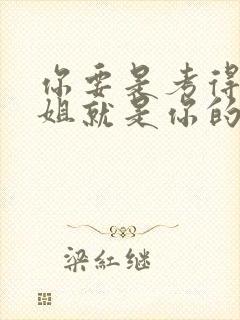 你要是考得
姐就是你的
梁紅继